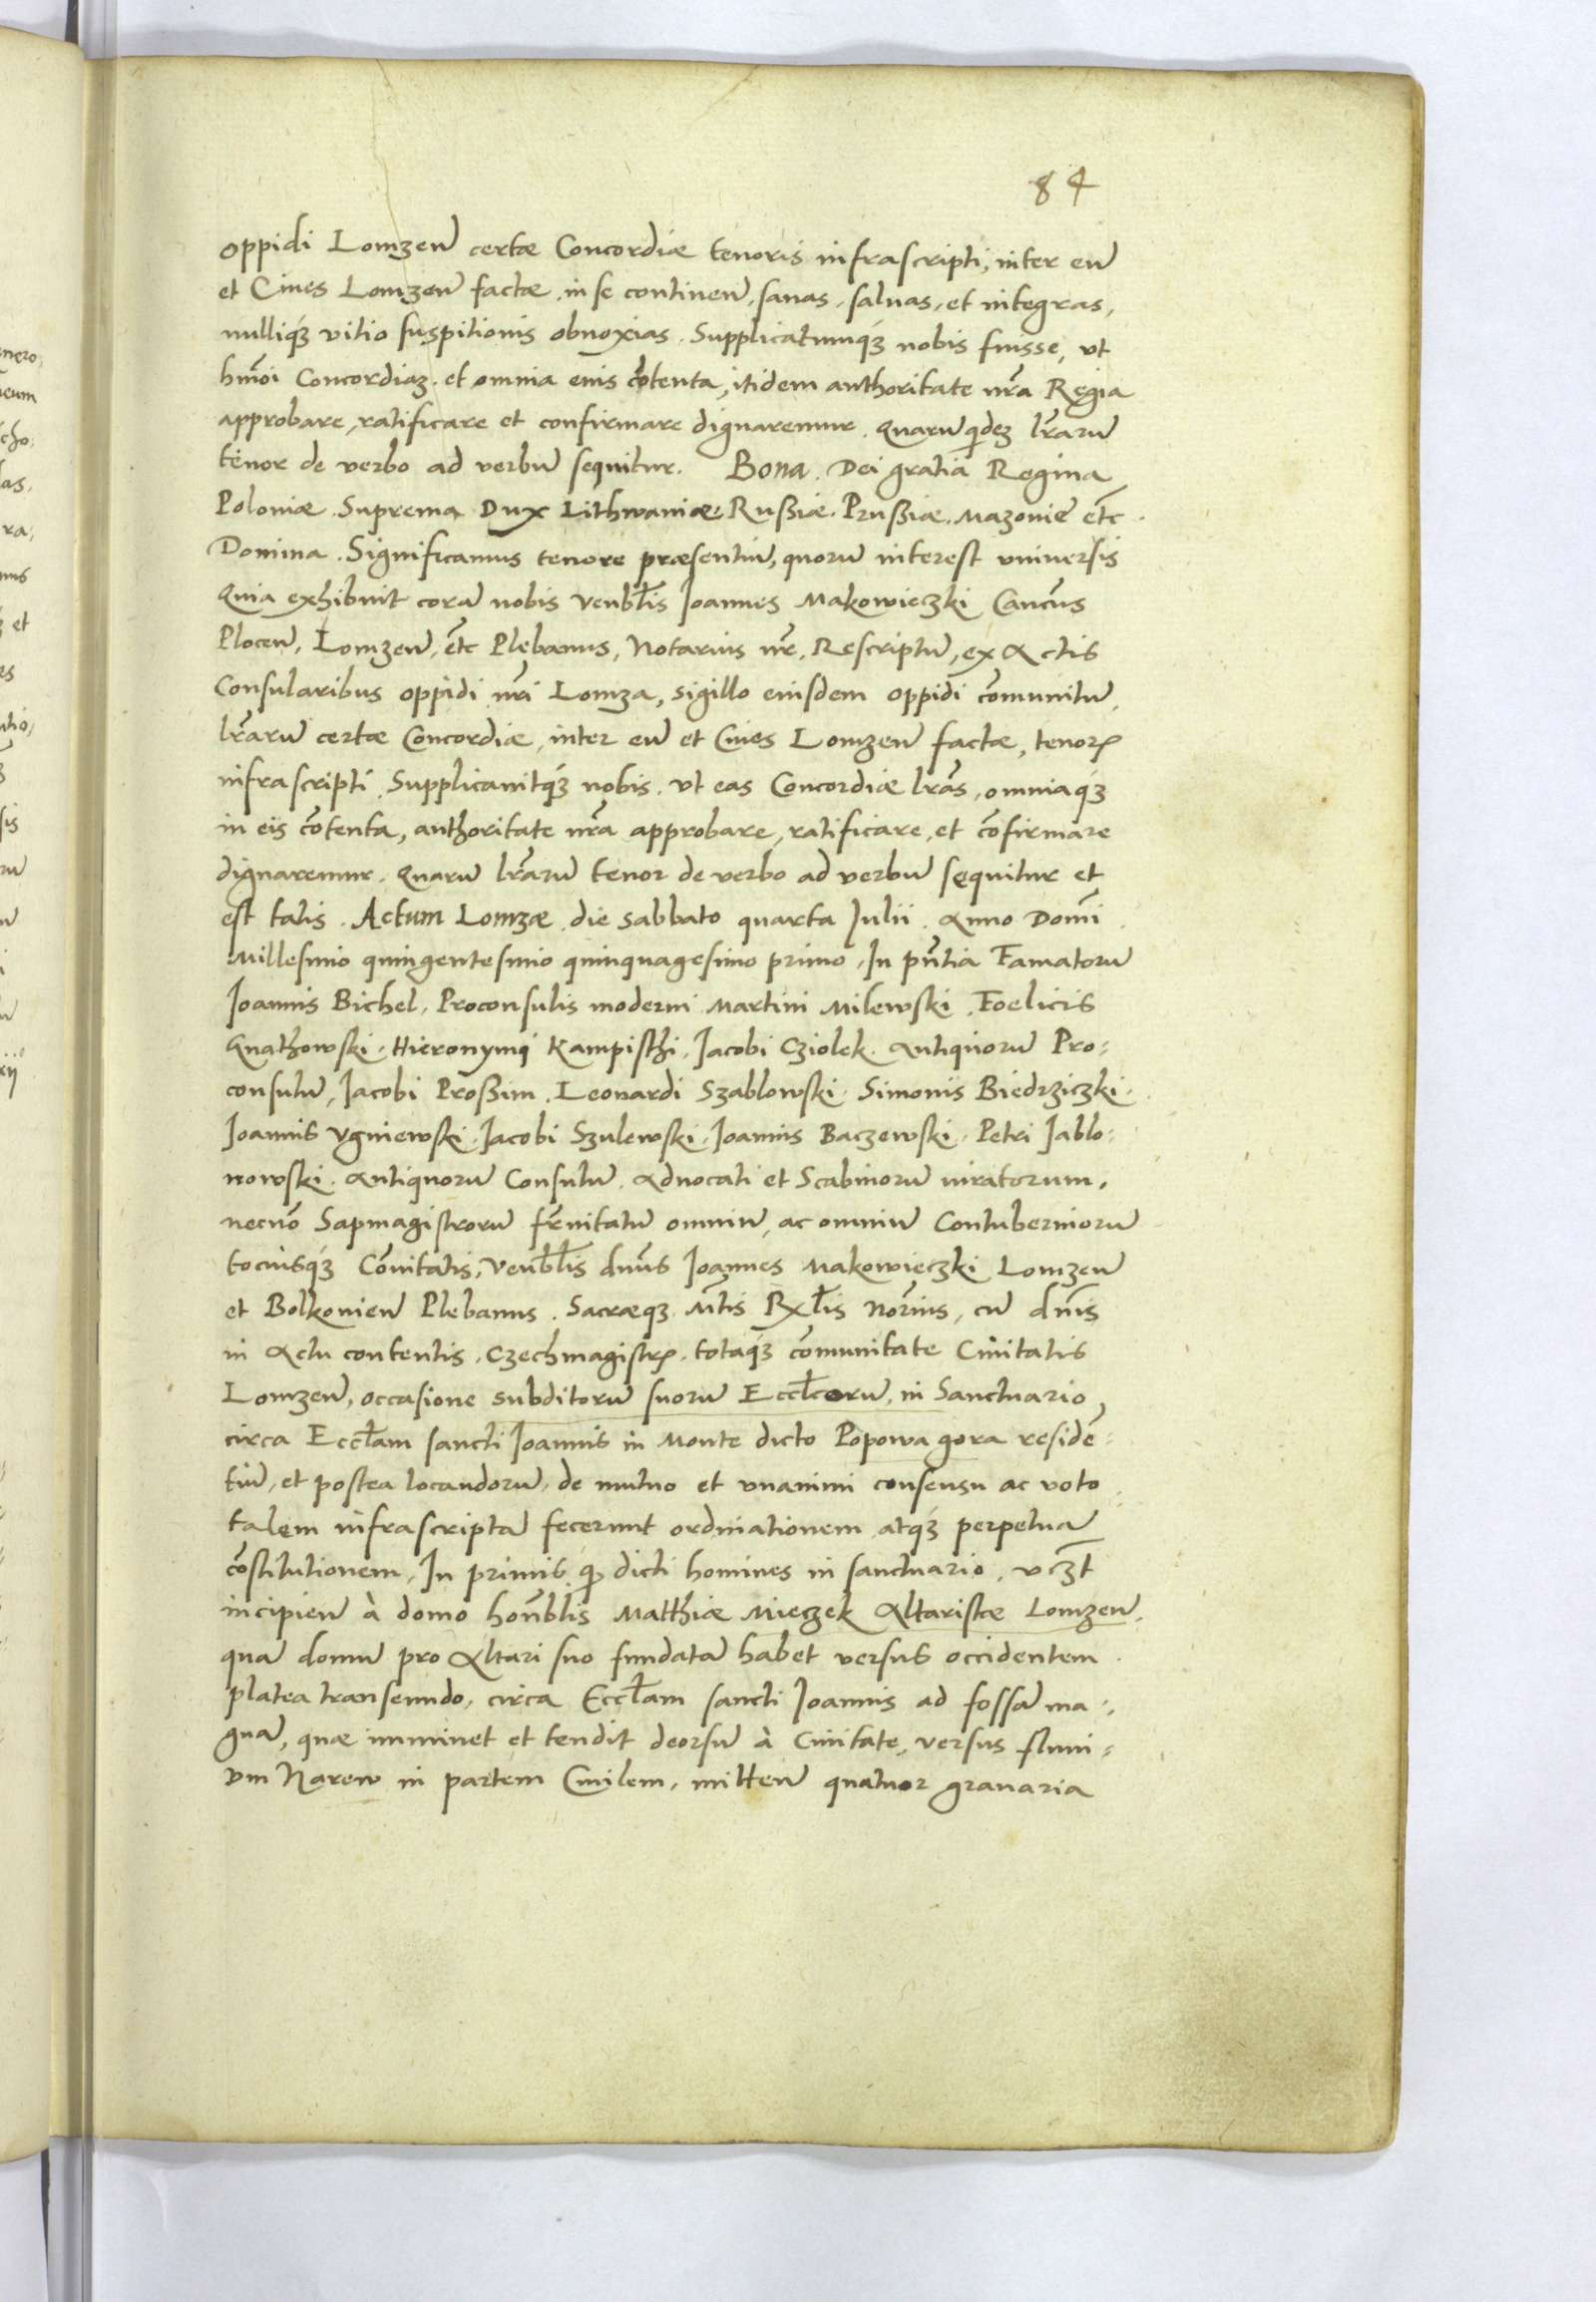 84
oppidi Lomzeñ certæ Concordiæ tenoris infrascripti, inter eũ
et Ciues Lomzeñ factæ, in se contineñ, sanas, saluas, et integras,
nulliq́ꝫ vitio suspitionis obnoxias. Supplicatumq́ꝫ nobis fuisse, vt
hm̃oi Concordiaꝫ et omnia eius cõtenta, itidem authoritate nr̃a Regia
approbare, ratificare et confirmare dignaremur. Quarũ qͥdeꝫ lr̃arũ
tenor de verbo ad verbũ sequitur. Bona. Dei gratia Regina
Poloniæ. Suprema Dux Lithwaniæ. Rußiæ. Prußiæ. Mazoniẽ etc̃.
Domina. Significamus tenore præsentiũ, quorũ interest vniuersis
Quia exhibuit corã nobis Venbłis Joannes Makowieczki Canc̃us
Ploceñ, Lomzeñ, etc̃ Plebanus, Notarius nr̃, Rescriptũ, ex Actis
Consularibus oppidi nr̃i Lomza, sigillo eiusdem oppidi cõmunitũ,
lr̃arũ certæ Concordiæ, inter eũ et Ciues Lomzeñ factæ, tenorꝭ
infrascripti. Supplicauitq́ꝫ nobis, vt eas Concordiæ lr̃as, omniaq́ꝫ
in eis cõtenta, authoritate nr̃a approbare, ratificare, et cõfirmare
dignaremur. Quarũ lr̃arũ tenor de verbo ad verbũ sequitur et
est talis. Actum Lomzæ die sabbato quarta Julii. Anno Domĩ
Millesimo quingentesimo quinquagesimo primo. In pñtia Famatorũ
Joannis Bichel, Proconsulis moderni Martini Milewski. Foelicis
Gnathowski. Hieronymi Kampisthi. Jacobi Cziolek. Antiquorũ Pro-
consulũ, Jacobi Proßim. Leonardi Szablowski. Simonis Biedrziczki.
Joannis Vgniewski. Jacobi Szulewski. Joannis Baczewski. Petri Jablo-
nowski. Antiquorũ Consulũ. Aduocati et Scabinorũ iuratorum,
necnõ Sapmagistrorũ fr̃nitatũ omniũ, ac omniũ Contuberniorũ
tociusq́ꝫ Cõnitatis, Venbłis dñus Joannes Makowieczki Lomzeñ
et Bolkonieñ Plebanus. Sacræqꝫ Mt̃is Rxłis Nor̃ius, cũ dñis
in Actu contentis. Czechmagistrꝭ. totaq́ꝫ cõmunitate Ciuitatis
Lomzeñ, occasione subditorũ suorũ Eccłcorũ, in Sanctuario
circa Eccłam sancti Joannis in Monte dicto Popowa gora residẽ-
tiũ, et postea locandorũ, de mutuo et vnanimi consensu ac voto
talem infrascriptã fecerunt ordinationem atq́ꝫ perpetuã
cõstitutionem. In primis ꝙ dicti homines in sanctuario, vcꝫt̃
incipieñ à domo honb̃lis Matthiæ Mieczek Altaristæ Lomzeñ,
quã domũ pro Altari suo fundatã habet versus occidentem
plateã transeundo, circa Eccłam sancti Joannis ad fossã ma-
gnã, quæ imminet et tendit deorsũ à Ciuitate, versus fluui-
vm Narew in partem Ciuilem, mitteñ quatuor granaria